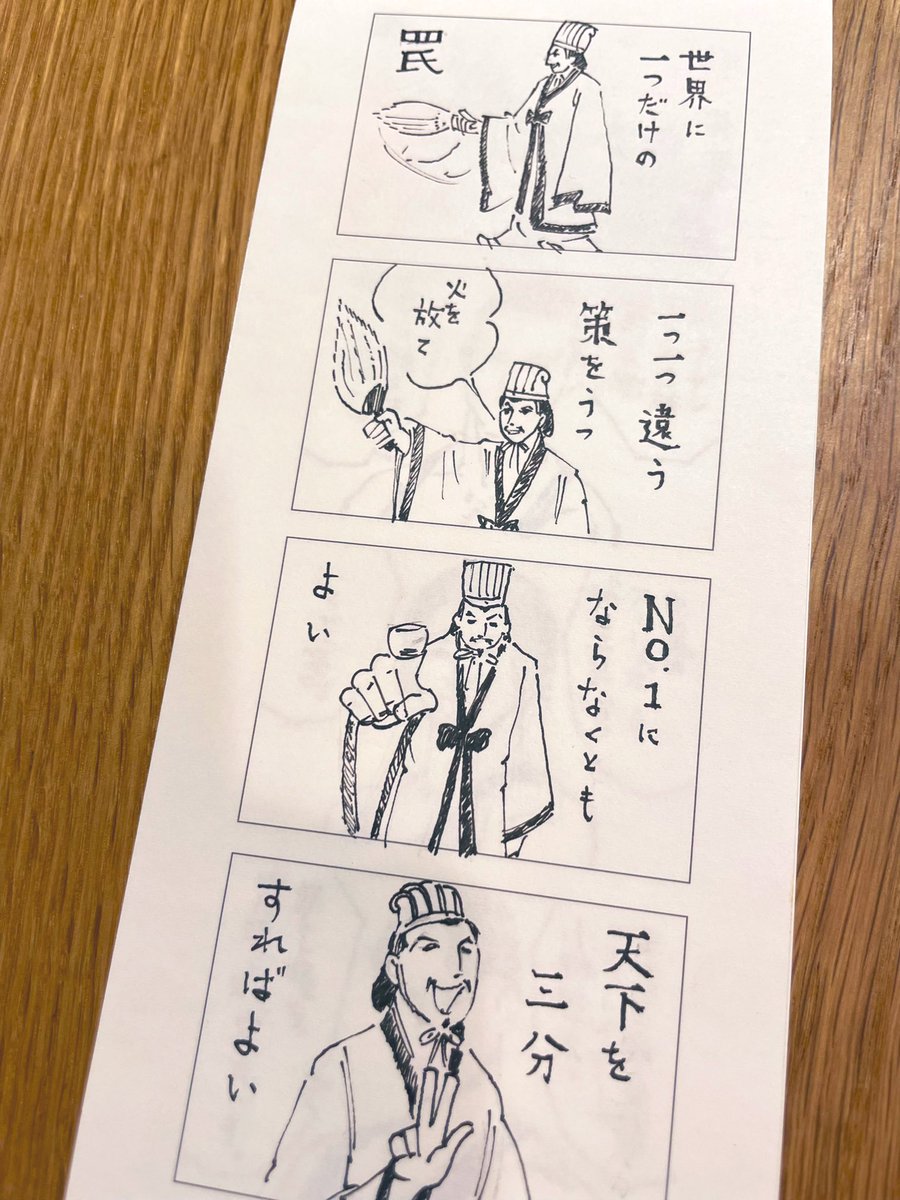 世界に
一つだけの
罠
一つ一つ違う
策をうつ
火を
放て
NO.1に
ならなくとも
よい
天下を
三分
すればよい